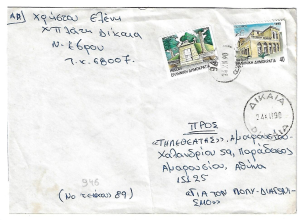 Χρήστου Ελένη
Χ Πλατη Δίκαια
Ν. Έβρου
Τ.κ. 68007.
ΕΛΛΗΝΙΚΗ ΔΗΜΟΚΡΑΤΙΑ
ΕΛΛΗΝΙΚΗ ΔΗΜΟΚΡΑΤΙΑ 40
ΔΙΚΑΙΑ
ΠΡΟΣ
«ΤΗΛΕΘΕΑΤΗΣ» Αμαρουσίου-
Χαλανδρίου 59, Παράδεισος
Αμαρουσίου, Αθήνα
15125
«ΓΙΑ ΤΟΝ ΠΟΛΥ-ΔΙΑΓΩΝΙ-
ΣΜΟ»
(Νο τεύχου 89)